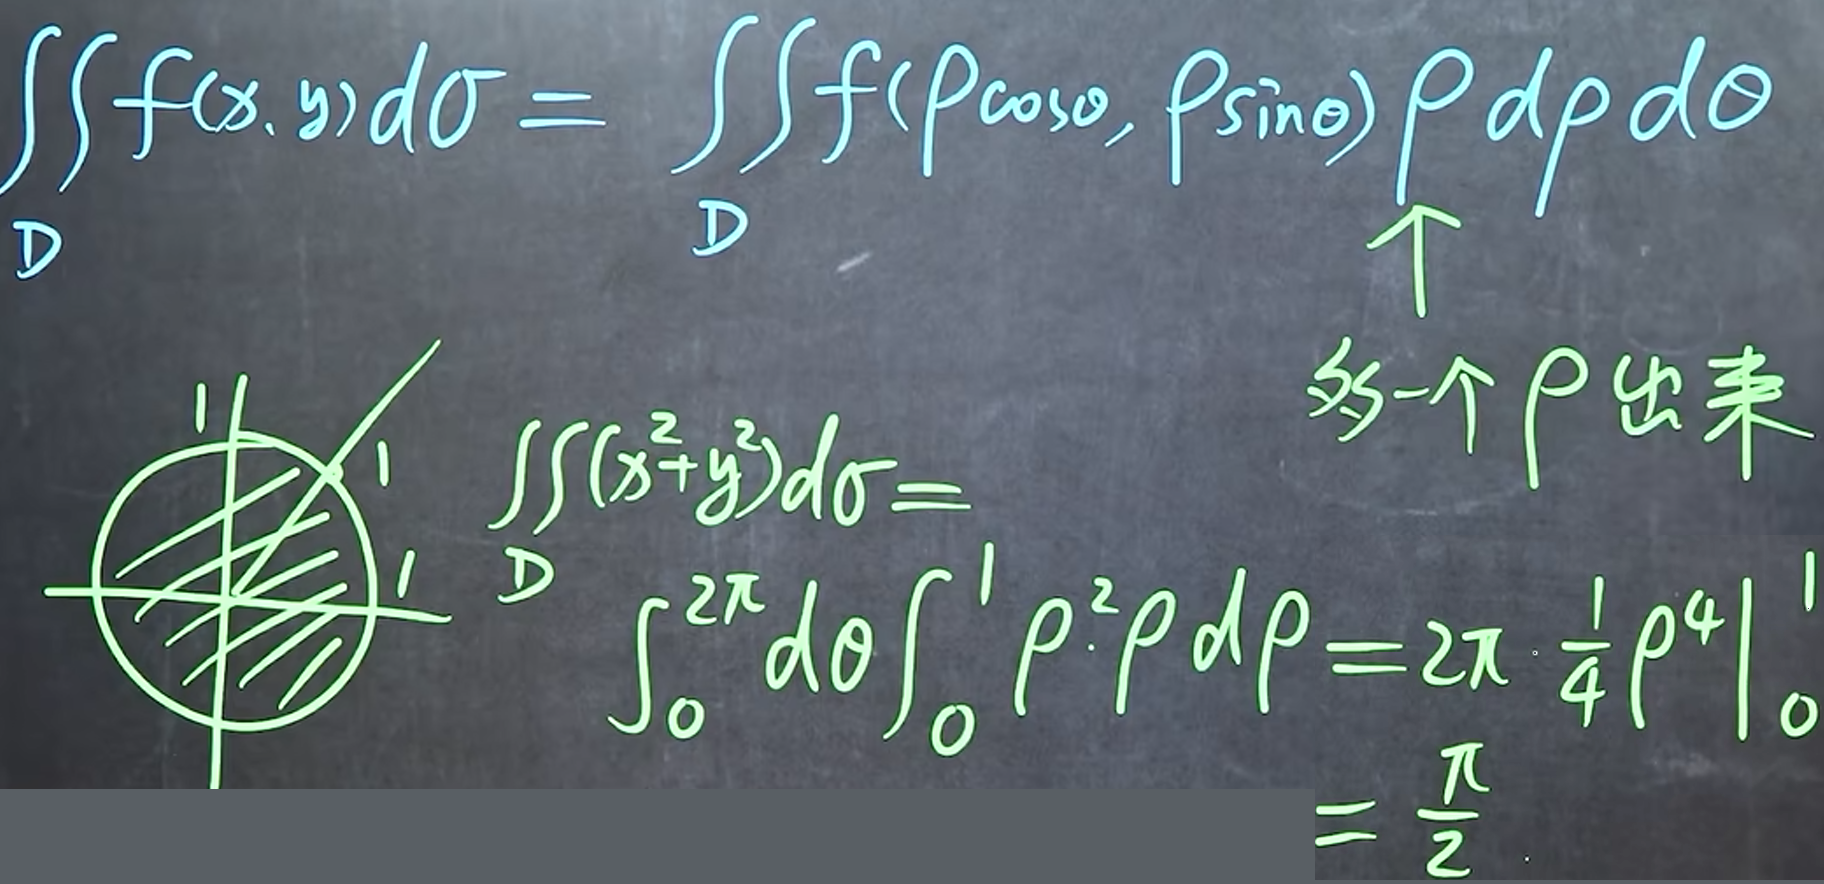 ∬_D f(x,y)dσ = ∬_D f(ρcosθ, ρsinθ) ρ dρ dθ
↑
多一个 ρ 出来
1
1
1
∬_D (x²+y²)dσ =
∫₀^{2π} dθ ∫₀¹ ρ²·ρ dρ = 2π · 1/4 ρ⁴ |₀¹
= π/2